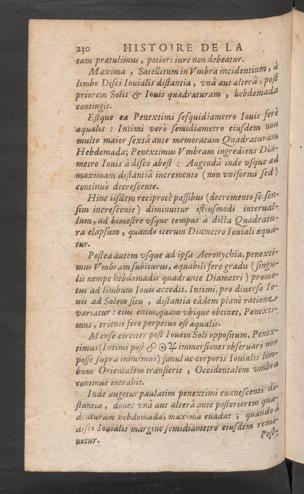 230 HISTOIRE DE LA
tam prætulimus, potiori iure non debeatur.
Maxima, Satellitum in Vmbra incidentium, à
limbo Disci Iouialis distantia, vnâ aut alterâ, post
priorem Solis & Iouis quadraturam, hebdomada
contingit.
Estque ea Penextimi sesquidiametro Iouis ferè
æqualis: Intimi verò semidiametro eiusdem non
multo maior sextâ ante memoratam Quadraturam
Hebdomada; Penextimus Vmbram ingrediens Dia-
metro Iouis à disco abest: Augendâ inde vsque ad
maximam distantiâ incremento (non vniformi sed)
continuò decrescente.
Hinc iisdem reciprocè passibus (decremento sc. sen-
sim increscente) diminuitur istiusmodi interual-
lum, ad bimestre vsque tempus à dicta Quadratu-
ra elapsum, quando iterum Diametro Iouiali æqua-
tur.
Postea autem vsque ad ipsa Acronychia, penexti-
mus Vmbram subiturus, æquabili ferè gradu (singu-
lis nempe hebdomadis quadrante Diametri) pronior
tus ad limbum Iouis accedit. Intimi, pro diuerso Io-
uis ad Solem situ, distantia eâdem planè ratione
variatur: eius enim, quam vbique obtinet, Penexti-
mus, trieni fere perpetuo est æqualis.
Mense circiter post Iouem Soli oppositum, Penex-
timus (Intimi post ☍ ☉ ♃ immersiones obseruari non
posse supra innuimus) simul ac corporis Iouialis lim-
bum Orientalem transierit, Occidentalem vmbra
continuò intrabit.
Inde augetur paulatim penextimi euanescenti di-
stantia, donec vnâ aut alterâ ante posteriorem qua-
draturam hebdomada, maxima euadat; quando à
disci Iouialis margine semidiametro eiusdem remo-
uetur.
Post-